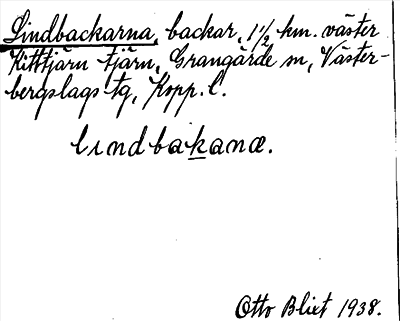 Lindbackarna, backar, 1 1/2 km. väster
Kittjärn tjärn, Grangärde sn, Väster-
bergslags tg, Kopp. l.
lındbakanæ.
Otto Blixt 1938.